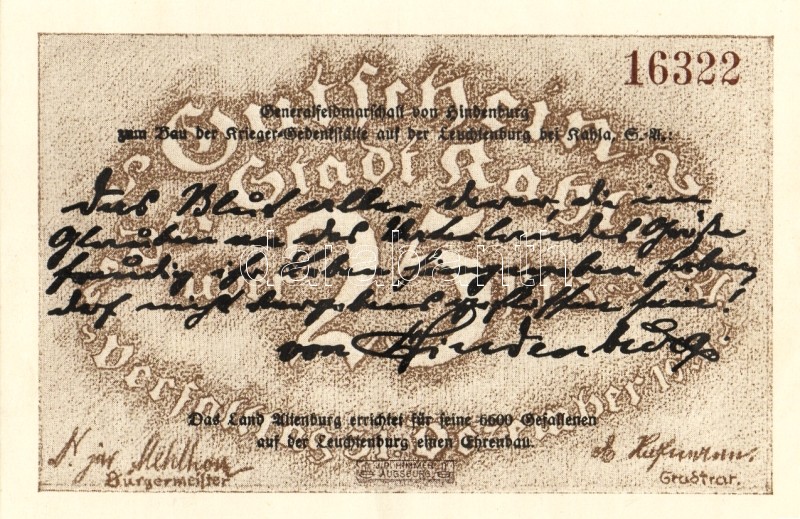 16322
Gutschein
Generalfeldmarschall von Hindenburg
zum Bau der Krieger-Gedenkstätte auf der Leuchtenburg bei Kahla, S.-A.:
Stadt Kahla
Das Blut aller derer, die im
Glauben an des Vaterlandes Größe
freudig ihr Leben hingegeben haben,
darf nicht vergebens geflossen sein!
25
von Hindenburg.
Das Land Altenburg errichtet für seine 6600 Gefallenen
auf der Leuchtenburg einen Ehrenbau.
Bürgermeister
Stadtrat.
AUGSBURG